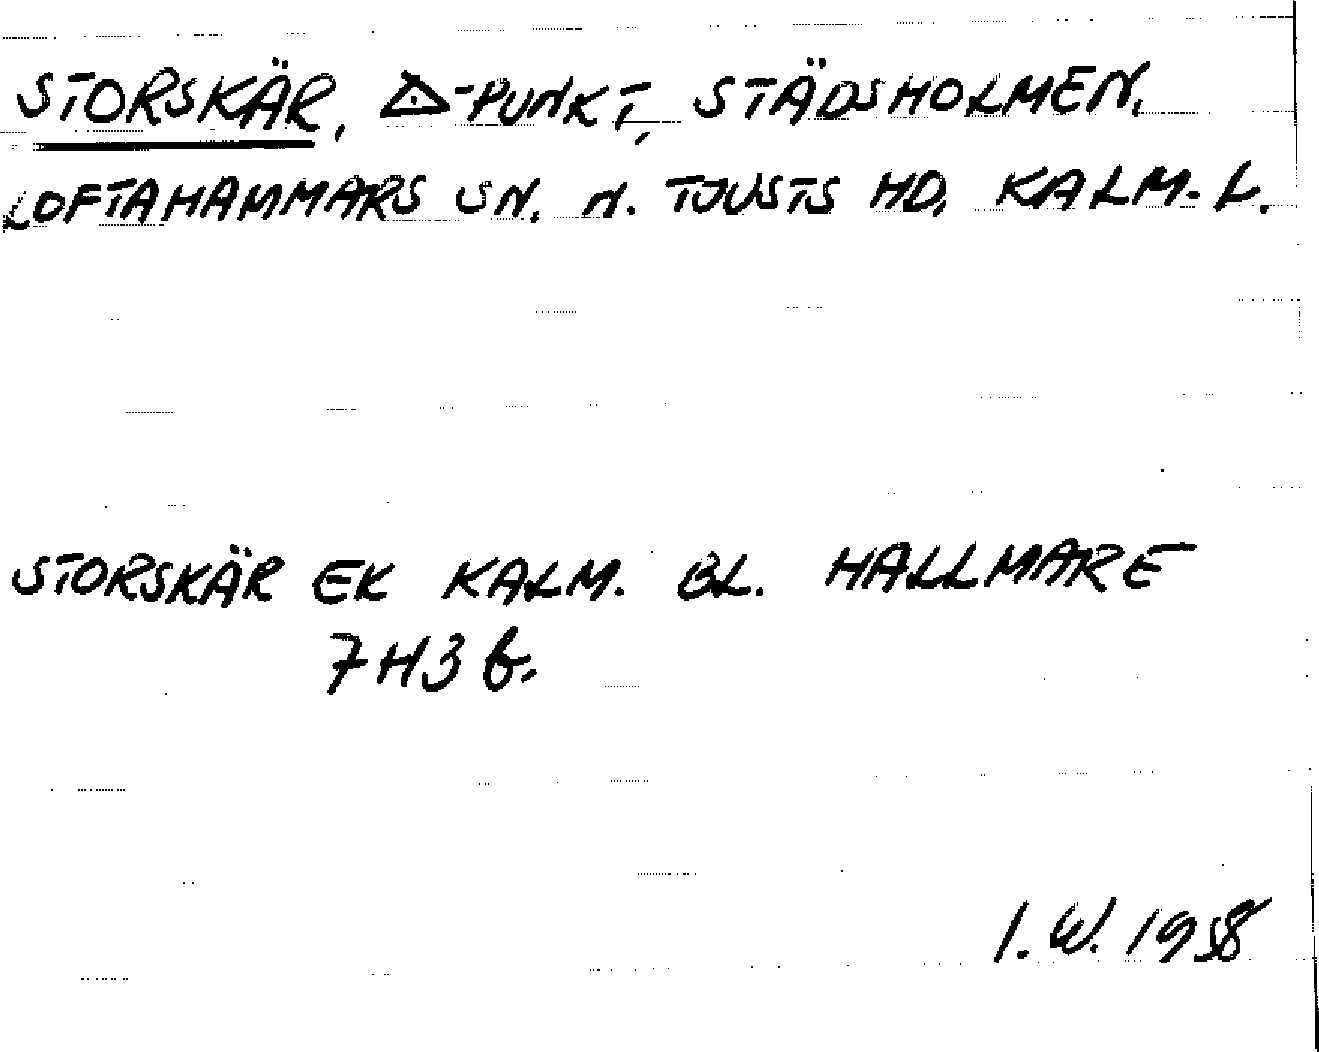 STORSKÄR, △-PUNKT, STÄDSHOLMEN,
LOFTAHAMMARS SN. N. TJUSTS HD, KALM. L.
STORSKÄR EK KALM. BL. HALLMARE
7H3 b.
I. W. 1958